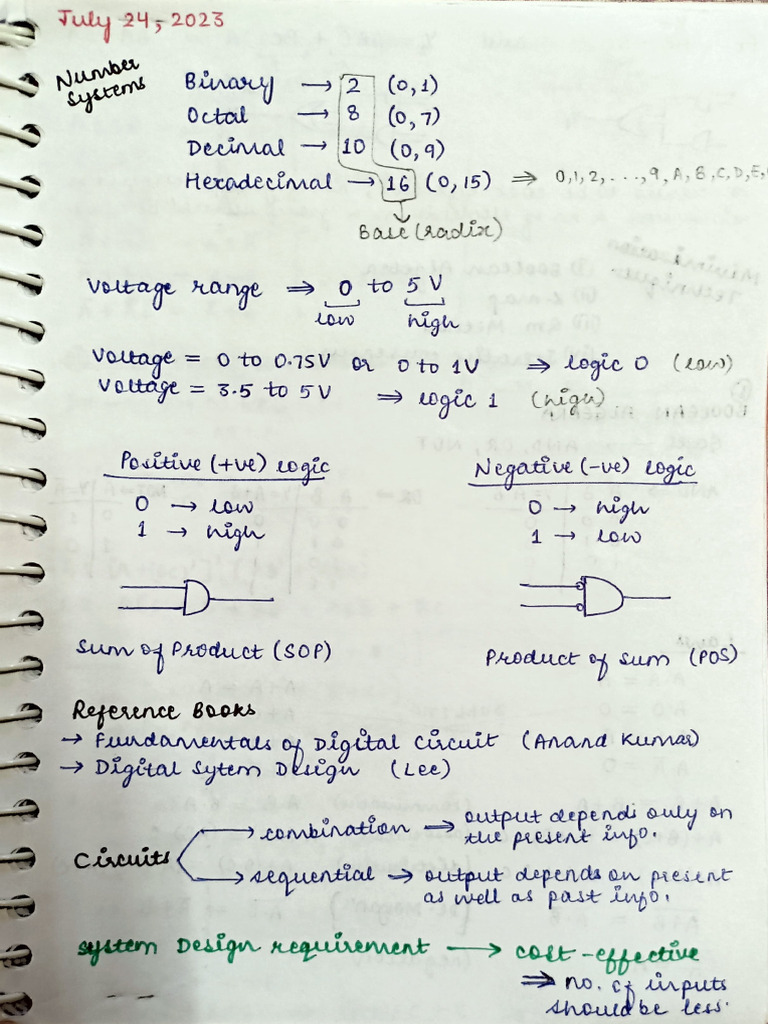 July 24, 2023
Number Systems
Binary → 2 (0,1)
Octal → 8 (0,7)
Decimal → 10 (0,9)
Hexadecimal → 16 (0,15) ⇒ 0,1,2, ...,9, A, B, C, D, E,
Base (radix)
Voltage range ⇒ 0 to 5 V
low high
Voltage = 0 to 0.75V or 0 to 1V ⇒ logic 0 (low)
Voltage = 3.5 to 5V ⇒ logic 1 (high)
Positive (+ve) logic
0 → low
1 → high
Sum of Product (SOP)
Negative (-ve) logic
0 → high
1 → low
Product of sum (POS)
Reference Books
→ Fundamentals of Digital Circuit (Anand Kumar)
→ Digital Sytem Design (Lee)
Circuits
→ combination → output depends only on
the present info.
→ sequential → output depends on present
as well as past info.
System Design requirement → cost-effective
⇒ no. of inputs
should be less.